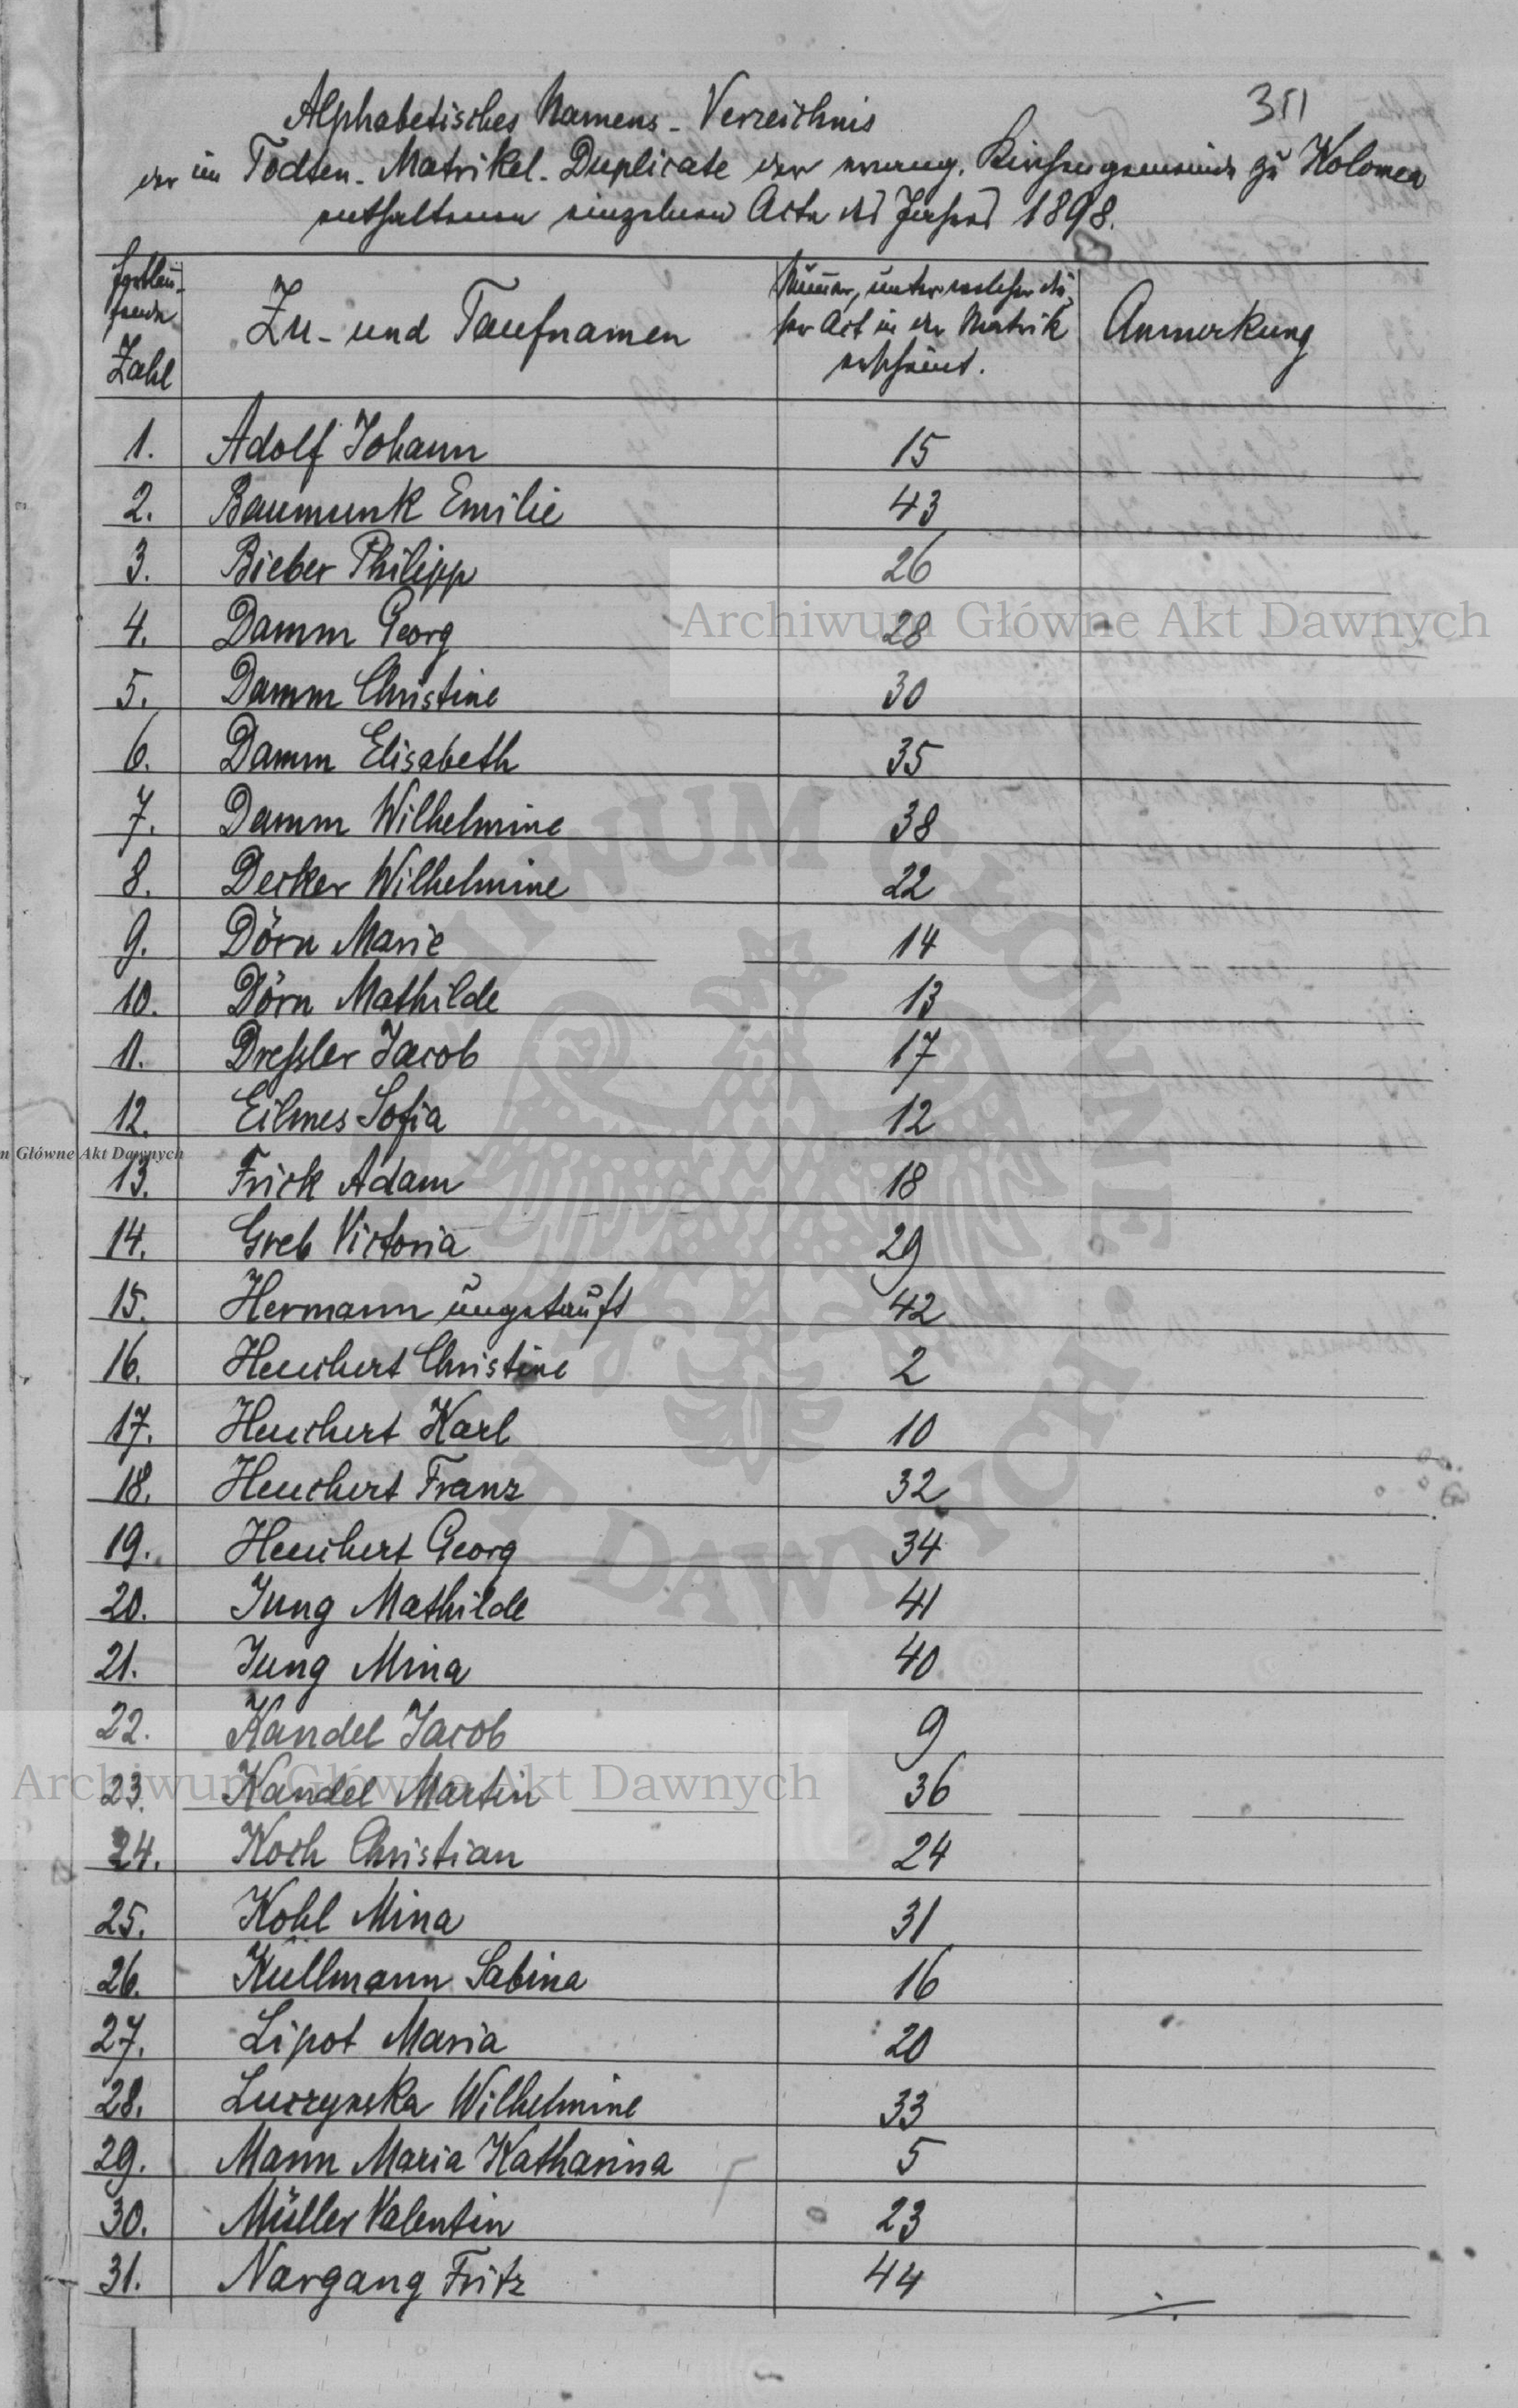 351
Alphabetisches Namens-Verzeichnis
der im Todten-Matrikel-Duplicate der evang. Kirchengemeinde zu Kolomea
enthaltenen einzelnen Acte des Jahres 1898.
Fortlau-
fende
Zahl
Zu- und Taufnamen
Nummer, unter welcher die-
ser Act in der Matrik
erscheint.
Anmerkung
1. Adolf Johann 15
2. Baumunk Emilie 43
3. Bieber Philipp 26
4. Damm Georg 28
5. Damm Christine 30
6. Damm Elisabeth 35
7. Damm Wilhelmine 38
8. Decker Wilhelmine 22
9. Dörn Marie 14
10. Dörn Mathilde 13
11. Dreßler Jacob 17
12. Eilmes Sofia 12
13. Frick Adam 18
14. Greb Victoria 29
15. Hermann ungetauft 42
16. Heuchert Christine 2
17. Heuchert Karl 10
18. Heuchert Franz 32
19. Heuchert Georg 34
20. Jung Mathilde 41
21. Jung Mina 40
22. Kandel Jacob 9
23. Kandel Martin 36
24. Koch Christian 24
25. Kohl Mina 31
26. Kullmann Sabina 16
27. Lipot Maria 20
28. Luczynska Wilhelmine 33
29. Mann Maria Katharina 5
30. Müller Valentin 23
31. Nargang Fritz 44
Archiwum Główne Akt Dawnych
m Główne Akt Dawnych
Archiwum Główne Akt Dawnych